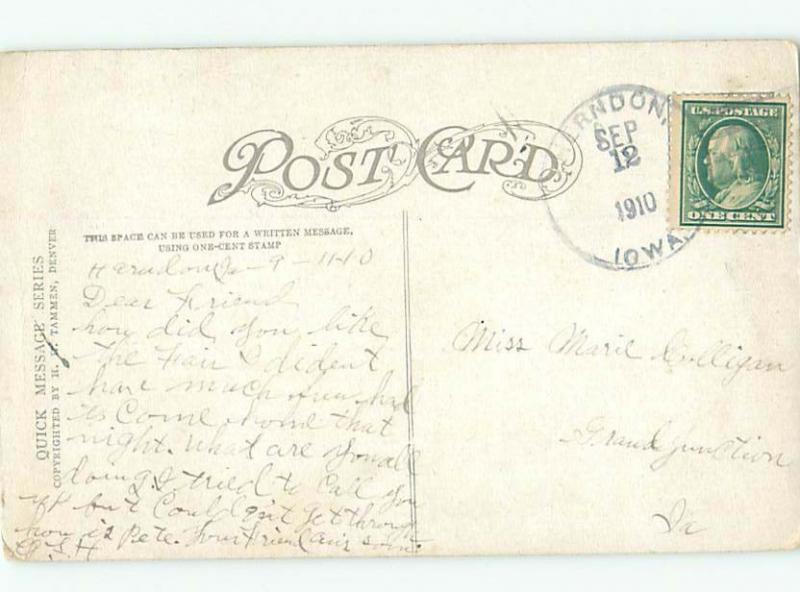 POST CARD
THIS SPACE CAN BE USED FOR A WRITTEN MESSAGE,
USING ONE-CENT STAMP
QUICK MESSAGE SERIES
COPYRIGHTED BY H. H. TAMMEN, DENVER
ERNDON,
SEP
12
1910
IOWA
U.S. POSTAGE
ONE CENT
Herndon Ia - 9 - 11-10
Dear Friend
how did you like
the Fair I dident
have much fun had
to Come home that
night. What are you all
doing. I tried to Call you
up but Could'nt get through
how is Pete. Your Friend
Miss Marie Culligan
Grand Junction
Ia